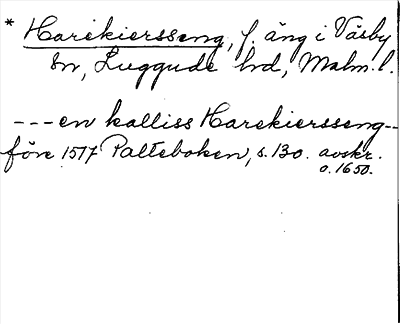 * Harekiersseng, f. äng i Väsby
sn, Luggude hd, Malm. l.
---en kalliss Harekiersseng--
före 1517 Palteboken, s. 130. avskr.
o. 1650.